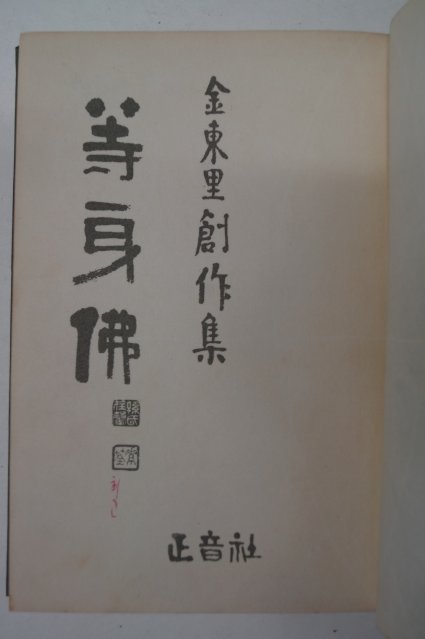 金東里創作集
等身佛
正音社